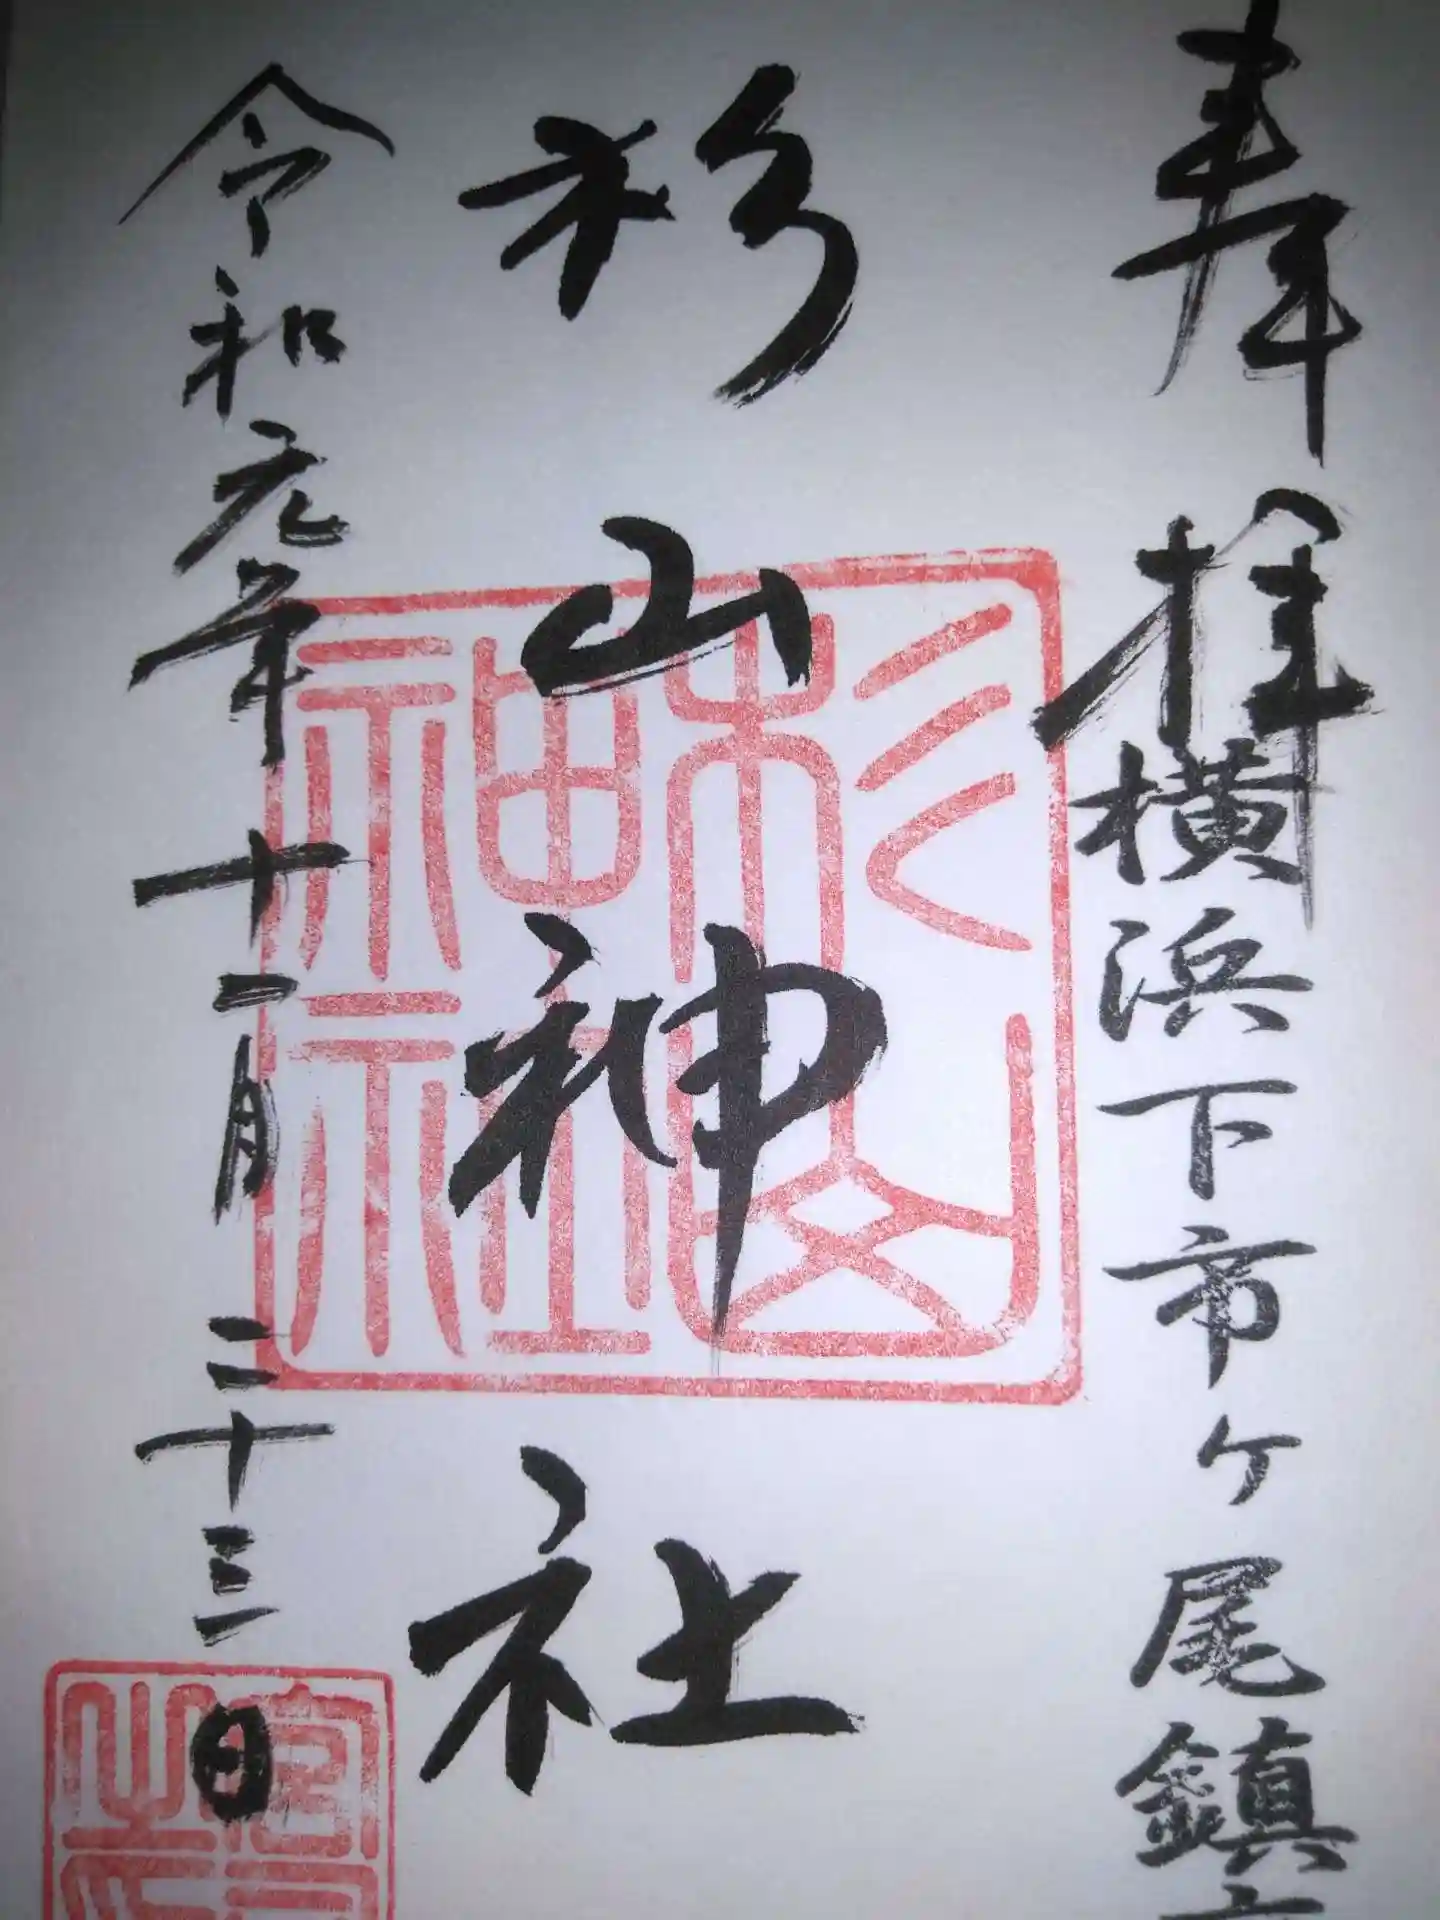 奉拝
横浜下市ケ尾鎮
杉山神社
杉山神社
令和元年十一月二十三日